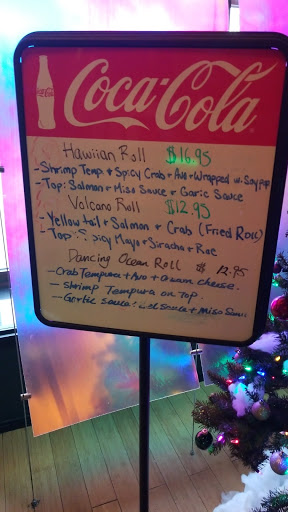 Coca-Cola
Hawiian Roll $16.95
- Shrimp Temp + Spicy Crab + Avo + Wrapped w. Soy pap
- Top: Salmon + Miso Sauce + Garic Sauce
Volcano Roll $12.95
- Yellow tail + Salmon + Crab (Fried Roll)
- Top: Spicy Mayo + Siracha + Roe
Dancing Ocean Roll $ 12.95
- Crab Tempura + Avo + Cream cheese.
- Shrimp Tempura on Top.
- Garlic sauce + Eel Sauce + Miso
Coca-Cola